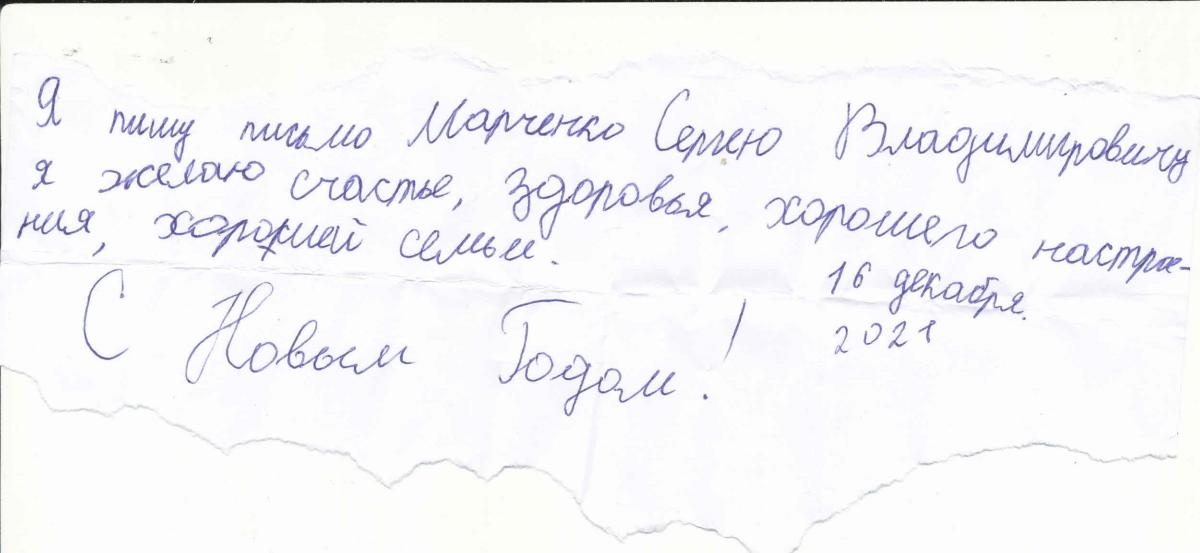 Я пишу письмо Марченко Сергею Владимировичу
я желаю счастье, здоровья, хорошего настрое-
ния, хорошей семьи.
16 декабря.
2021
С Новым Годом!